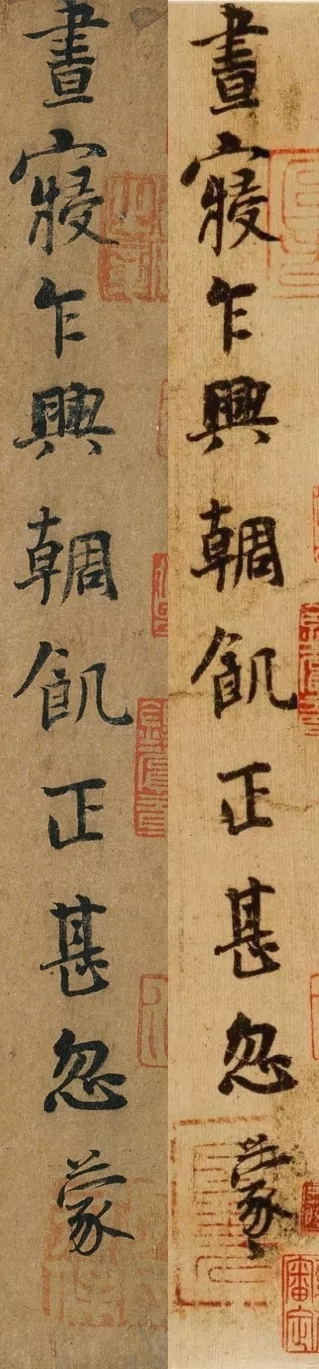 晝寢乍興輖飢正甚忽蒙
晝寢乍興輖飢正甚忽蒙